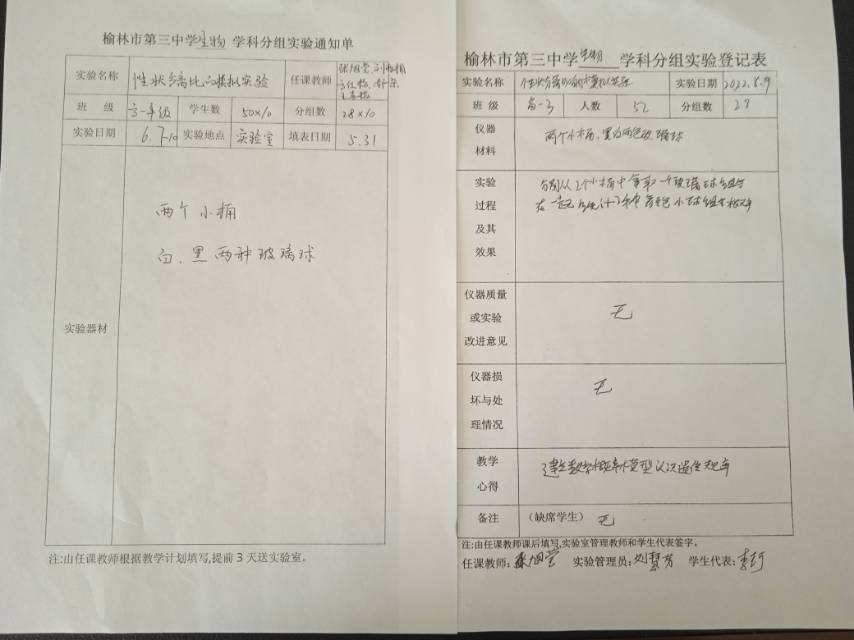 榆林市第三中学生物 学科分组实验通知单
实验名称 性状分离比的模拟实验 任课教师 张旭莹、
班 级 高一年级 学生数 50×10 分组数 28×10
实验日期 6.7-10 实验地点 实验室 填表日期 5.31
实验器材
两个小桶
白、黑两种玻璃球
注:由任课教师根据教学计划填写,提前3天送实验室。
榆林市第三中学生物 学科分组实验登记表
实验名称 性状分离比的模拟实验 实验日期 2022.6.9
班 级 高一3 人数 52 分组数 27
仪器
材料
两个小桶、黑白两色玻璃球
实验
过程
及其
效果
分别从2个小桶中拿取一个玻璃球组合
在一起
仪器质量
或实验
改进意见
无
仪器损
坏与处
理情况
无
教学
心得
建立数学概率模型认识遗传规律
备注 (缺席学生) 无
注:由任课教师课后填写,实验室管理教师和学生代表签字。
任课教师: 张旭莹 实验管理员: 刘慧芳 学生代表: